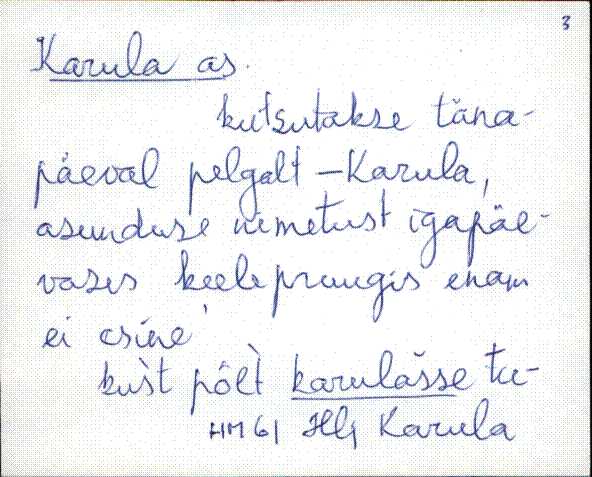 3
Karula as.
kutsutakse täna-
päeval pelgalt – Karula,
asunduse nimetust igapäe-
vases keelepruugis enam
ei esine
kust põlt karulasse tu-
HM 61 Hlj Karula